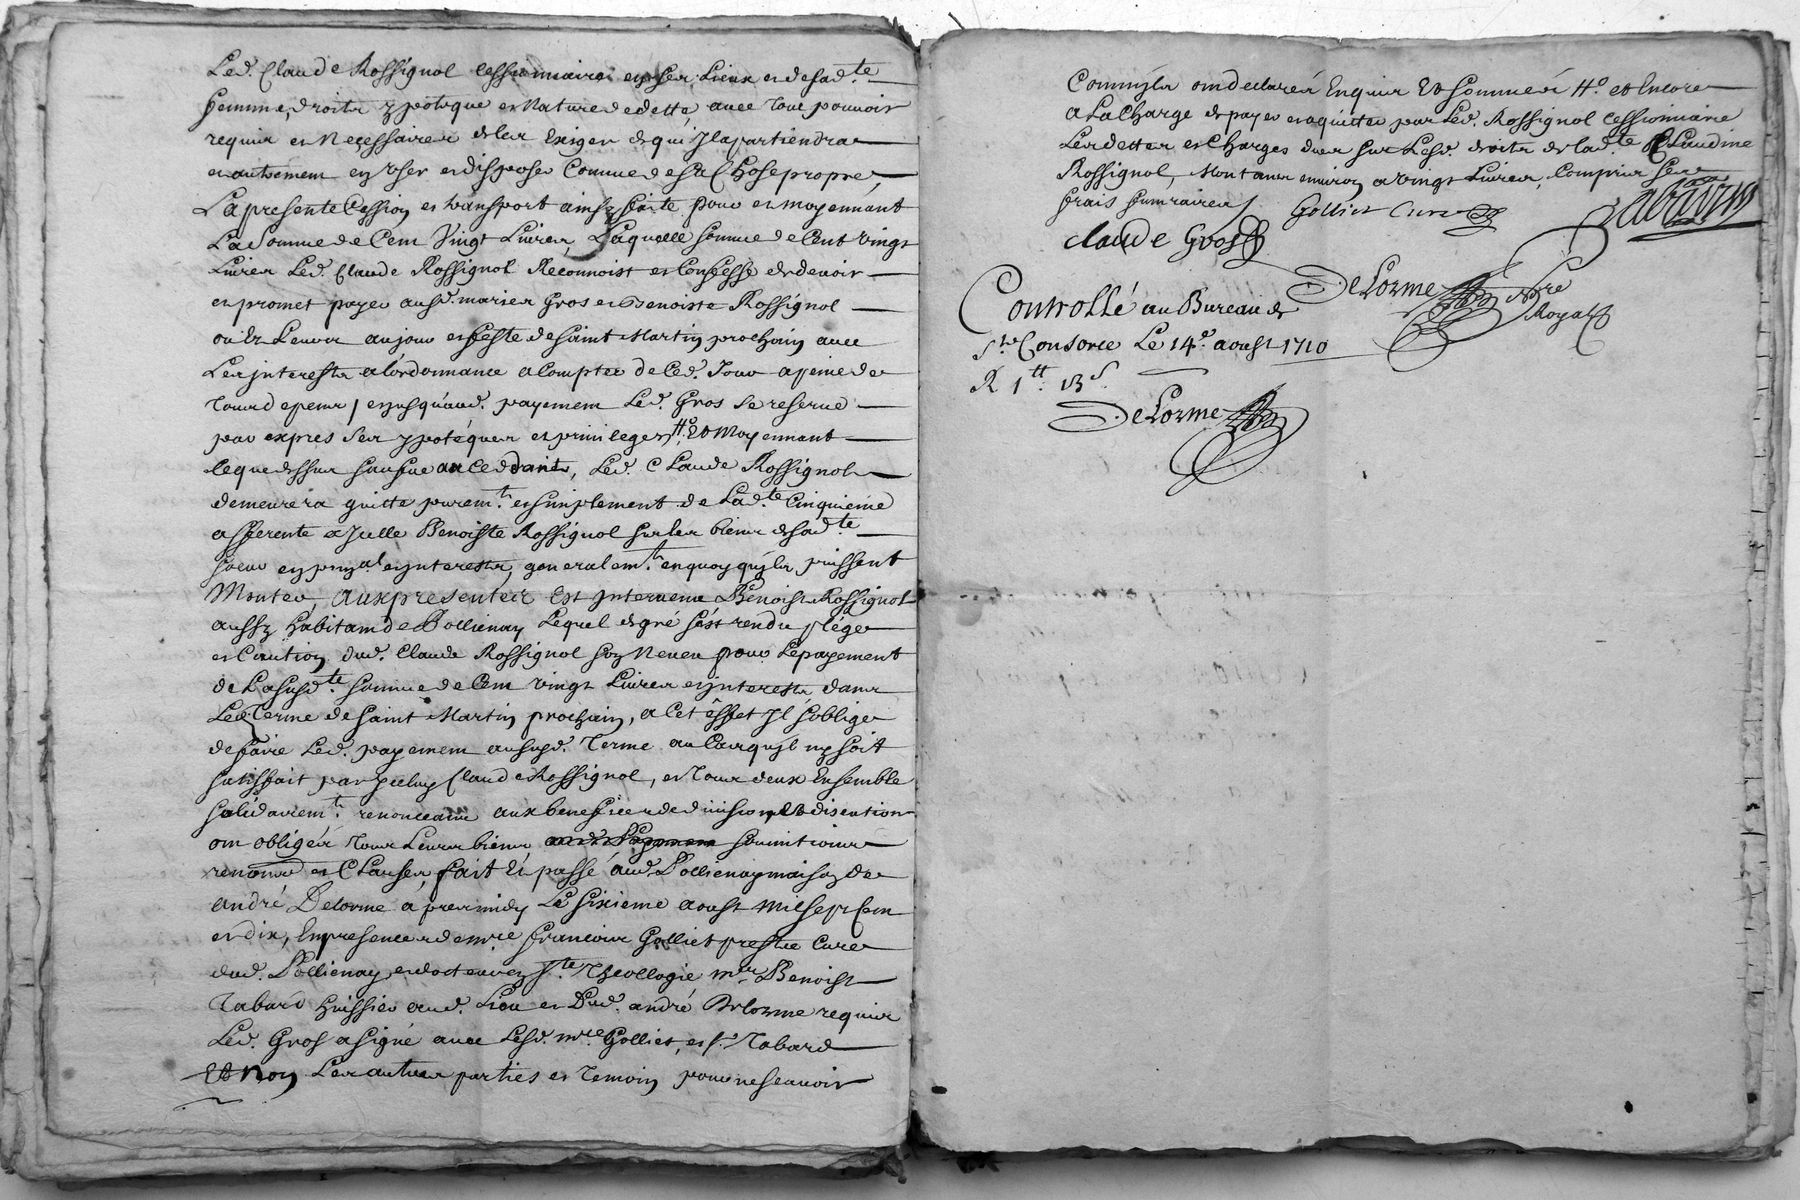 Led. Claude Rossignol cessionnaire en ses Lieux et de sad.te
femme, droits ypoteque et Nature de dette, avec tout pouvoir
requis et Necessaires de les Exiger de qui Il apartiendra
et autrement en User et disposer Comme de sa Chose propre,
La presente Cession et transport ainsy faite pour et moyennant
La Somme de Cent Vingt Livres, Laquelle somme de Cent vingt
Livres Led. Claude Rossignol Reconnoist et Confesse de devoir
et promet payer ausd. mariés Gros et Benoiste Rossignol
ou Les Leurs au jour et feste de saint Martin prochain avec
Les jnterests a L'ordonnance a Compter de Ced. Jour a peine de
tous depens, et jusqu'aud. payement Led. Gros se reserve
par expres ses ypotéques et privileges Ho Et Moyennant
lequel dessus sauf aux cedants, Led. Claude Rossignol
demeurera quitte purem.t et simplement de Lad.te Cinquieme
afferente a Jcelle Benoiste Rossignol sur les biens de sad.te
soeur en prin.al et jnterests, generalem.t en quoy qu'jls puissent
Monter, aux presentes Est Jntervenu Benoist Rossignol
aussy habitant de Pollienay Lequel de gré s'est rendu pléger
et Caution dud. Claude Rossignol son Neveu pour Le payement
de La susd.te somme de Cent vingt Livres et jnterests dans
Led. Terme de saint Martin prochain, a Cet éffet Jl s'oblige
de faire Led. payement aususd. Terme au Cas qu'jl n'y soit
satisfait par jceluy Claude Rossignol, et tous deux Ensemble
solidairem.t renonceant aux benefices de division et discution
ont obligés tous Leurs biens soumitions
renonce et Clauses, fait Et passé aud. Pollienay maison de
andré Delorme apres midy Le sixieme aoust mil sept Cent
et dix, En presence de m.re francois Golliet prestre Curé
dud. Pollienay et docteur en s.te Theollogie m.re Benoist
Tabard huissier aud. Lieu et Dud. andré Delorme requis
Led. Gros a signé avec Lesd. m.re Golliet, et s.r Tabard
Et Non Les autres parties et temoin pour ne scavoir
Comm'jls ont declarés Enquis Et sommés Ho et Encore
a La Charge de payer et aquitter par Led. Rossignol Cessionnaire
Les dettes et Charges dues sur Lesd. droits de lad.te Claudine
Rossignol, Montants environ a vingt Livres, Compris ses
frais funeraires Golliet Curé Tabard
claude Gros
DeLorme N.re Royal
Controllé au Bureau de
S.te Consorce Le 14e aoust 1710
R 1tt 13s
DeLorme